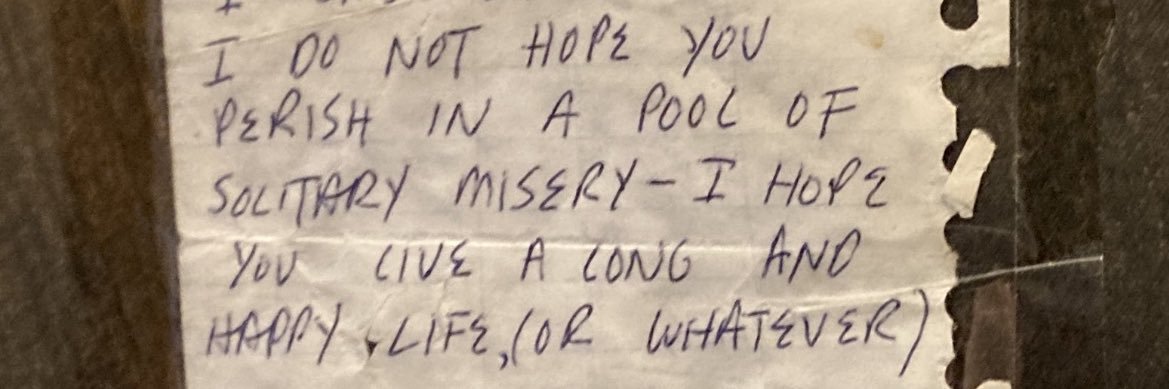 I DO NOT HOPE YOU
PERISH IN A POOL OF
SOLITARY MISERY - I HOPE
YOU LIVE A LONG AND
HAPPY LIFE, (OR WHATEVER)